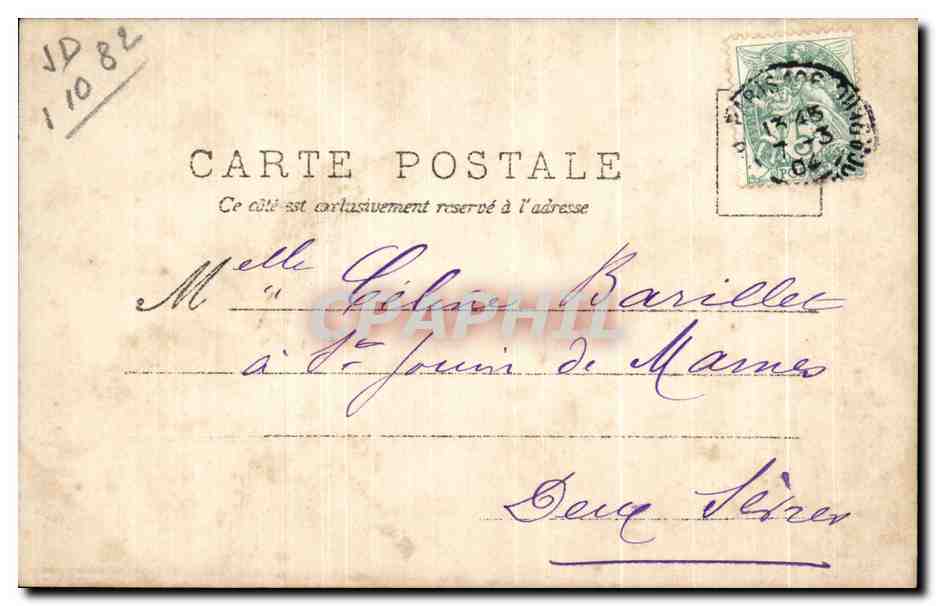 JD
1 10 82
CARTE POSTALE
Ce côté est exclusivement reservé à l'adresse
PARIS
13 45
1-3
04
5
Melle Céline Barillet
à St Jouin de Marnes
Deux Sèvres
CPAPHIL